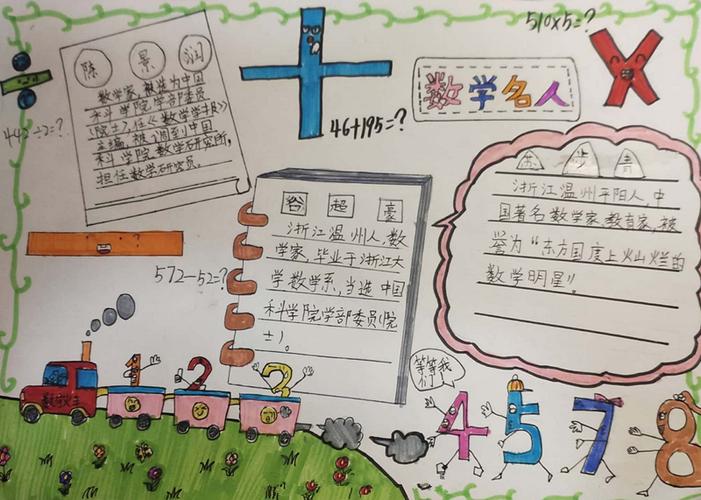 510×5=?
陈 景 润
数学家,被选为中国
科学院学部委员
(院士),任《数学学报》
主编,被调到中国
科学院数学研究所,
担任数学研究员。
442÷2=?
46+195=?
数学名人
谷 超 豪
浙江温州人,数
学家,毕业于浙江大
学数学系,当选中国
科学院学部委员(院
士)。
苏 步 青
浙江温州平阳人,中
国著名数学家,教育家,被
誉为“东方国度上灿烂的
数学明星”。
572-52=?
1 2 3
等等我
们
4 5 7 8